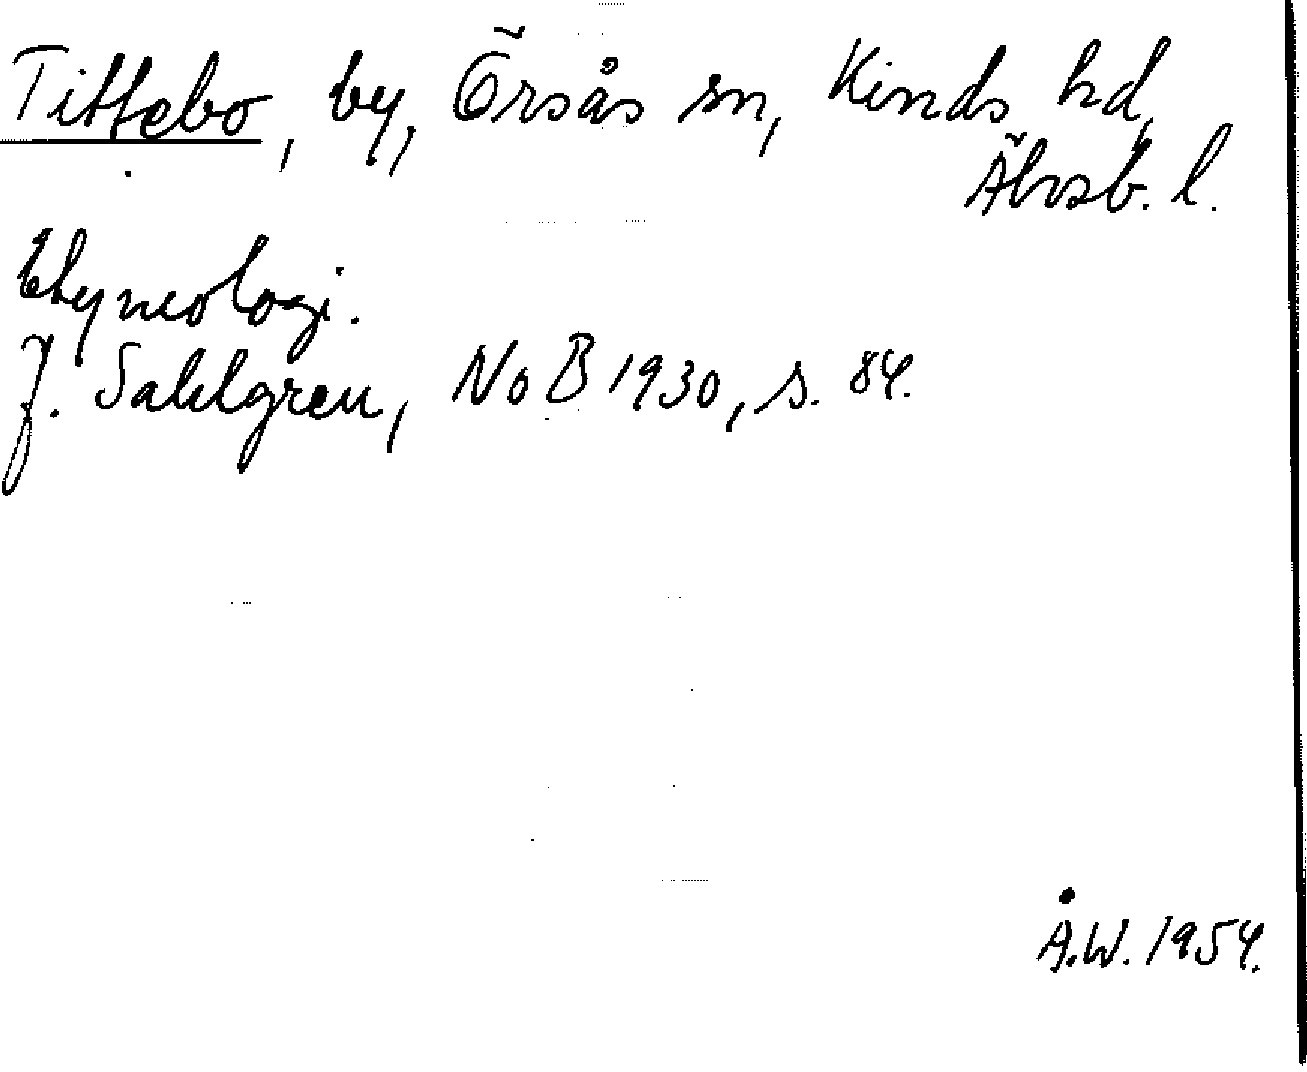 Tittebo, by, Örsås sn, Kinds hd,
Älvsb. l.
Etymologi.
J. Sahlgren, NoB 1930, s. 84.
Å.W. 1954.